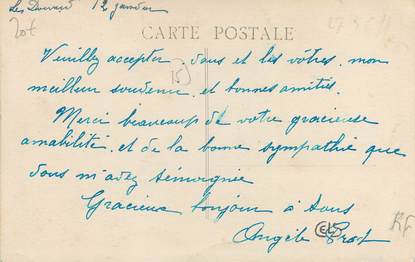 12 janvier
20f
CARTE POSTALE
Veuillez accepter, vous et les vôtres, mon
meilleur souvenir et bonnes amitiés.
Merci beaucoup de votre gracieuse
amabilité et de la bonne sympathie que
vous m'avez témoignée
Gracieux bonjour à Vous
Angèle
ELD